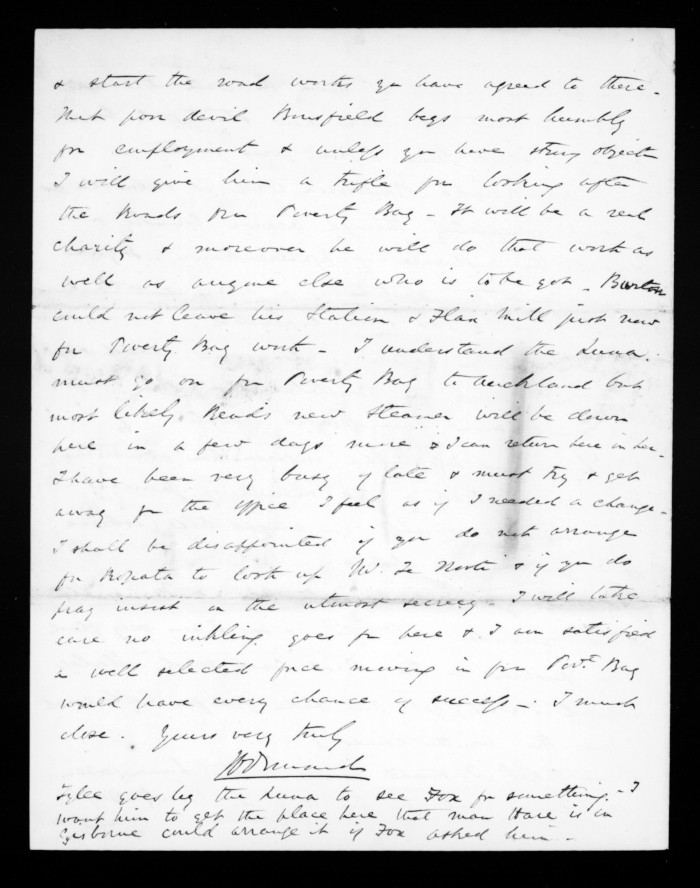 & start the road works you have agreed to there -
That poor devil Bousfield begs most humbly
for employment & unless you have strong object-
I will give him a trifle for looking after
the Roads for Poverty Bay - It will be a real
charity & moreover he will do that work as
well as anyone else who is to be got - Burton
could not leave his Station & Flax Mill just now
for Poverty Bay work - I understand the Luna
must go on from Poverty Bay to Auckland but
most likely Reads new Steamer will be down
here in a few days more & I can return here in her -
I have been very busy of late & must try & get
away for the office I feel as if I needed a change -
I shall be disappointed if you do not arrange
for Ropata to look up Te Kooti & if you do
pray insist on the utmost secrecy - I will take
care no inkling goes from here & I am satisfied
a well selected force moving in from Povt. Bay
would have every chance of success - I must
close. Yours very truly
JDOrmond
Tylee goes by the Luna to see Fox for something - I
want him to get the place here that man Hare is in
Gisborne could arrange it if Fox asked him -